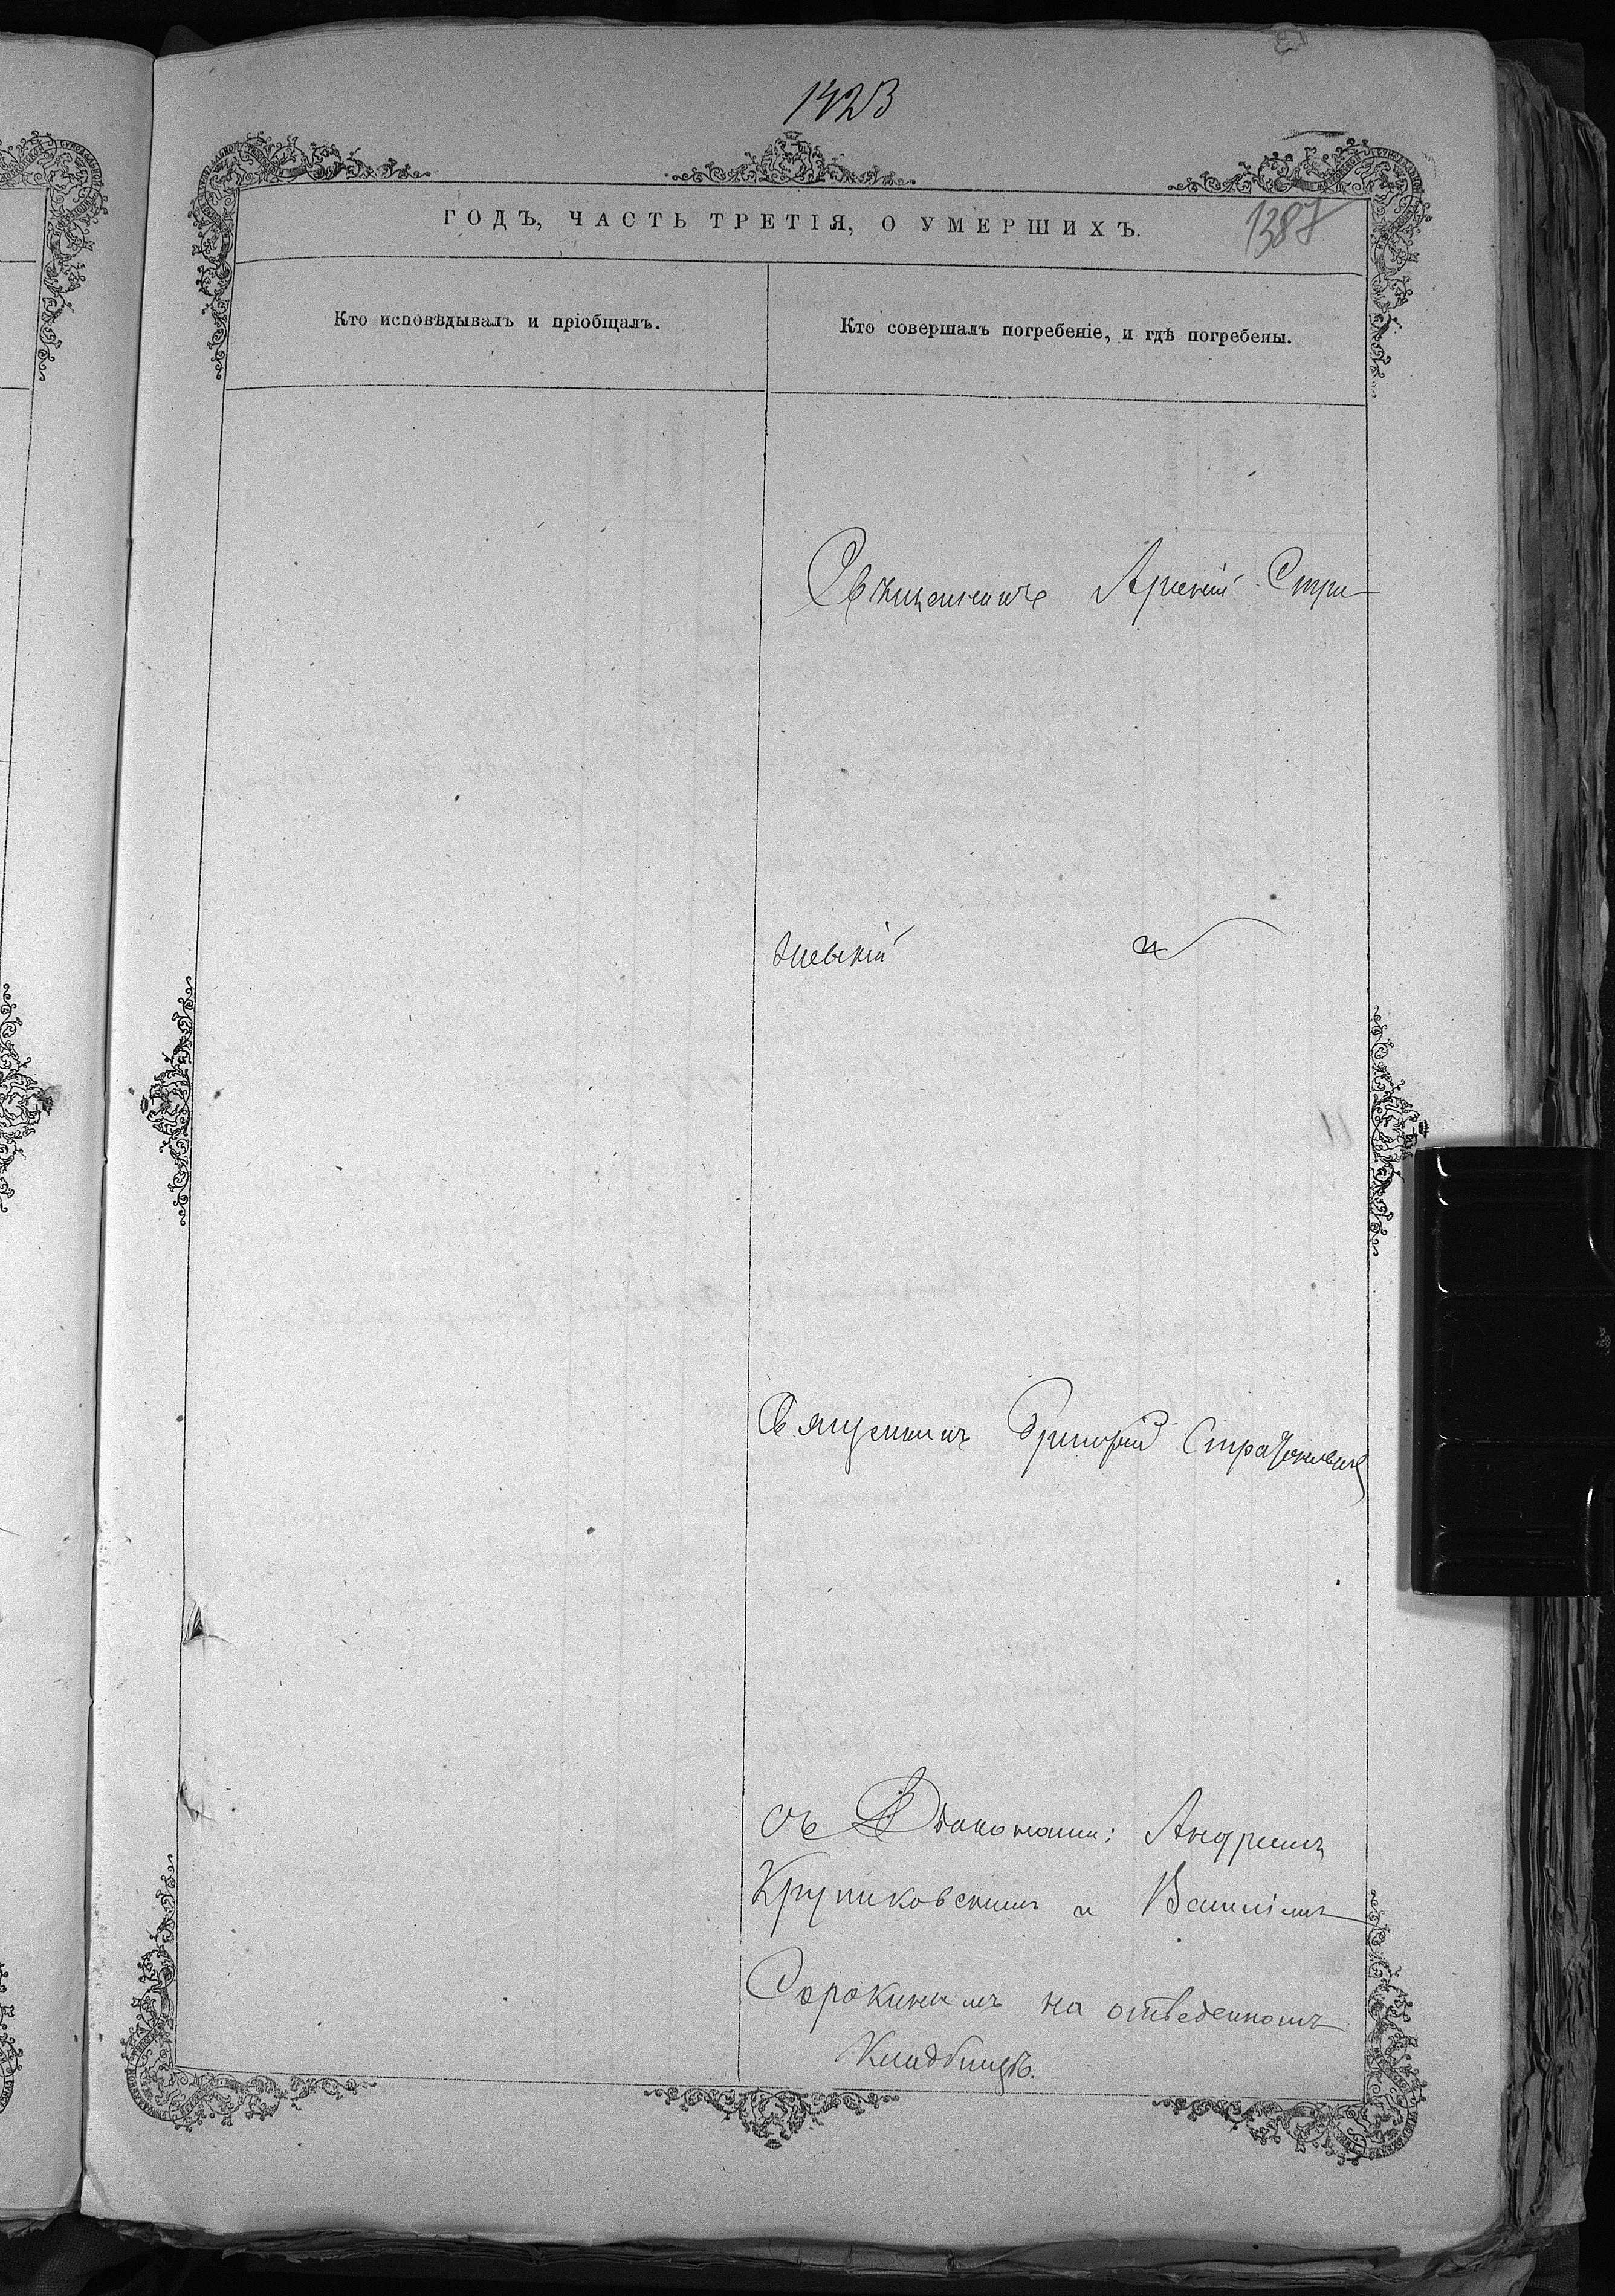 1423
ГОДЪ, ЧАСТЬ ТРЕТІЯ, О УМЕРШИХЪ.
1387
Кто исповѣдывалъ и пріобщалъ.
Кто совершалъ погребеніе, и гдѣ погребены.
Священникъ Арсеній Стри-
жевскій и
Священникъ Григорій Стратоновичъ
съ Діаконами: Андреемъ
Крупиковскимъ и Василіемъ
Сорокинымъ на отведенномъ
Кладбищѣ.